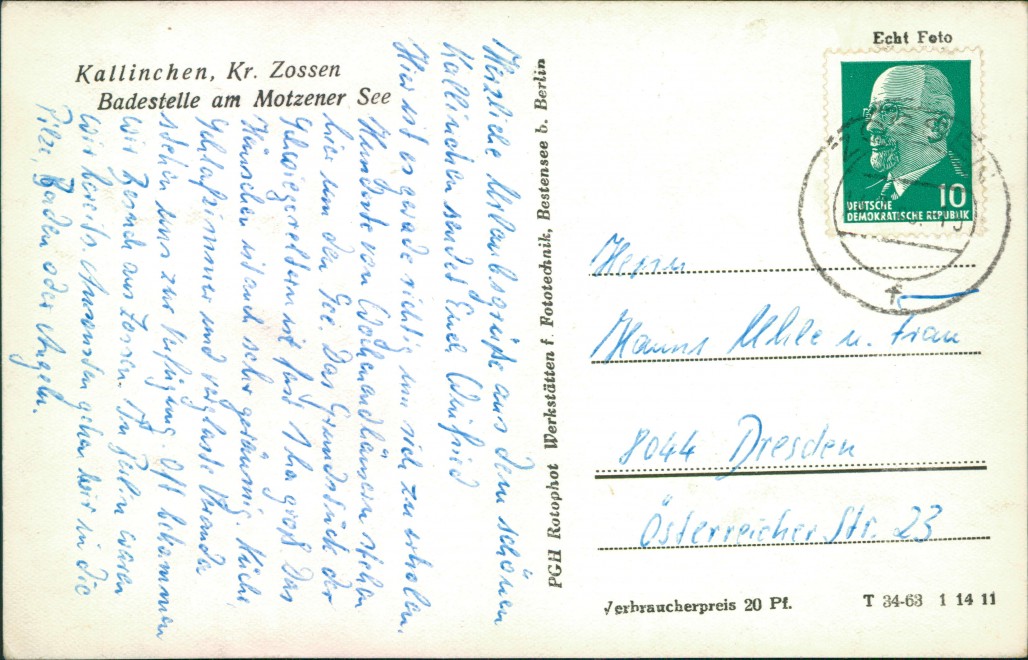 Kallinchen, Kr. Zossen
Badestelle am Motzener See
Herzliche Urlaubsgrüße aus dem schönen
Kallinchen sendet Euch Winfried
Hier ist es gerade richtig um sich zu erholen.
Hunderte von Wochenendhäusern stehen
hier um den See. Das Grundstück der
Schwiegereltern ist fast 1 ha groß. Das
Häuschen ist auch sehr geräumig. Küche
Schlafzimmer und verglaste Veranda
stehen uns zur Verfügung. Oft bekommen
wir Besuch aus Zossen. In Berlin waren
wir bereits. Ansonsten gehen wir in die
Pilze, Baden oder Angeln.
PGH Rotophot Werkstätten f. Fototechnik, Bestensee b. Berlin
Echt Foto
10
DEUTSCHE
DEMOKRATISCHE REPUBLIK
Herrn
Hanns Uhle u. Frau
8044 Dresden
Österreicher Str. 23
Verbraucherpreis 20 Pf.
T 34-63 1 14 11